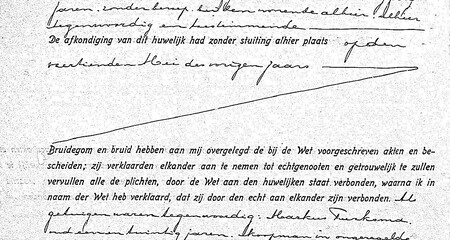 jaren, zonder beroep,
tegenwoordig en toestemmende
De afkondiging van dit huwelijk had zonder stuiting alhier plaats op den
veertienden Mei des vorigen jaars
Bruidegom en bruid hebben aan mij overgelegd de bij de Wet voorgeschreven akten en be-
scheiden; zij verklaarden elkander aan te nemen tot echtgenooten en getrouwelijk te zullen
vervullen alle de plichten, door de Wet aan den huwelijken staat verbonden, waarna ik in
naam der Wet heb verklaard, dat zij door den echt aan elkander zijn verbonden. Als
getuigen waren tegenwoordig: Markus Turksma,
jaren, koopman in